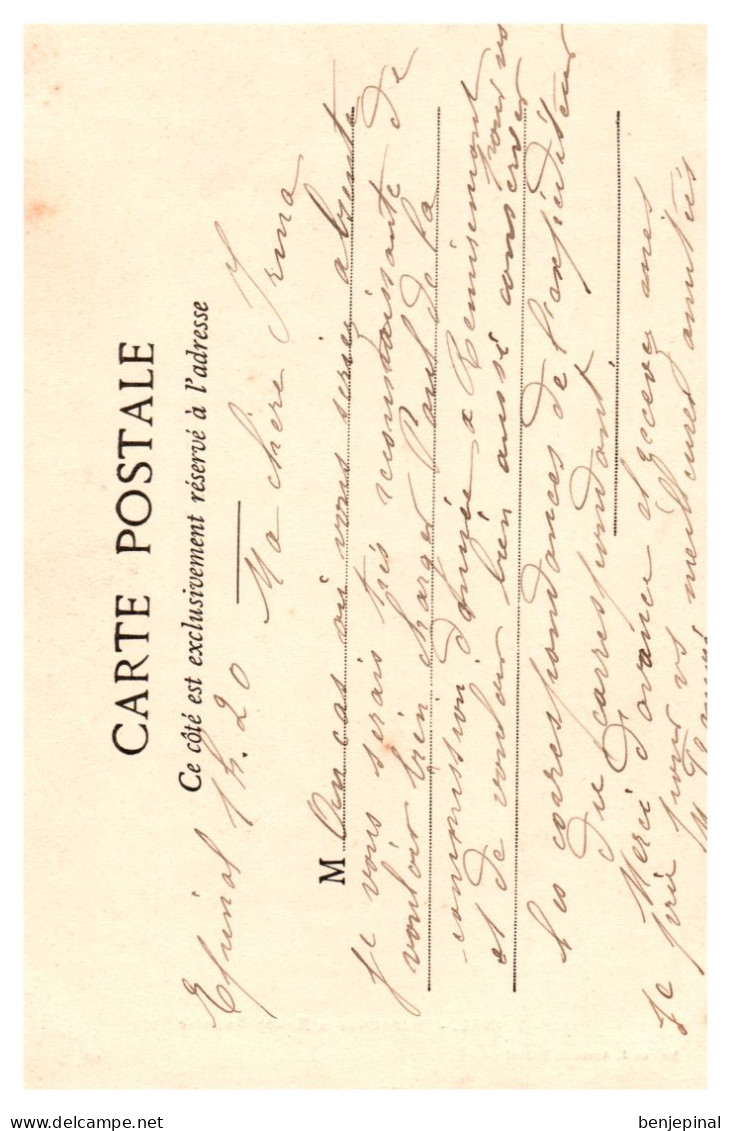 CARTE POSTALE
Ce côté est exclusivement réservé à l'adresse
Epinal 1h.20
Ma chère Irma
M
Au cas où vous seriez absente
je vous serais très reconnaissante de
vouloir bien charger Paul de la
commission donnée à Remiremont
et de vouloir bien aussi conserver pour vs
les correspondances de l'expéditeur
du correspondant.
Merci d'avance et recevez mes
je prie pour vs meilleures amitiés
benjepinal